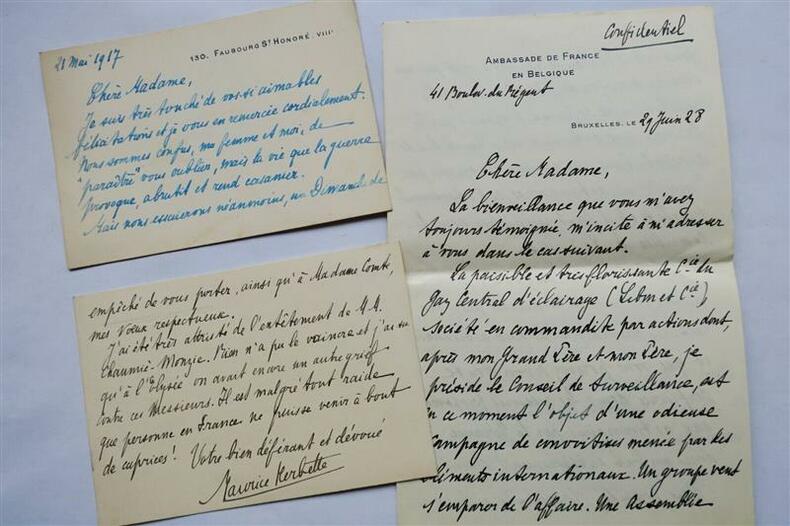 130, FAUBOURG ST HONORÉ. VIIIe
21 Mai 1917
Chère Madame,
Je suis très touché de vos si aimables
félicitations et je vous en remercie cordialement.
Nous sommes confus, ma femme et moi, de
"paraître" vous oublier, mais la vie que la guerre
provoque, abrutit et rend casanier.
Mais nous essuierons néanmoins, un Dimanche de
empêché de vous porter, ainsi qu'à Madame Comte,
mes Vœux respectueux.
J'ai été très attristé de l'entêtement de M.M.
Chaumié-Monzie. Rien n'a pu le vaincre et j'ai su
qu'à l'Elysée on avait encore un autre grief
contre ces Messieurs. Il est malgré tout raide
que personne en France ne puisse venir à bout
de caprices! Votre bien déférant et dévoué
Maurice Herbette
Confidentiel
AMBASSADE DE FRANCE
EN BELGIQUE
41 Boulev. du Régent
BRUXELLES, LE 29 Juin 28
Chère Madame,
La bienveillance que vous m'avez
toujours témoignée, m'incite à m'adresser
à vous dans le cas suivant.
La paisible et très florissante Cie du
Gaz Central d'éclairage (Lebon et Cie),
société en commandite par actions dont,
après mon Grand Père et mon Père, je
préside le Conseil de Surveillance, est
en ce moment l'objet d'une odieuse
Campagne de convoitises menée par des
éléments internationaux. Un groupe veut
s'emparer de l'affaire. Une Assemblée